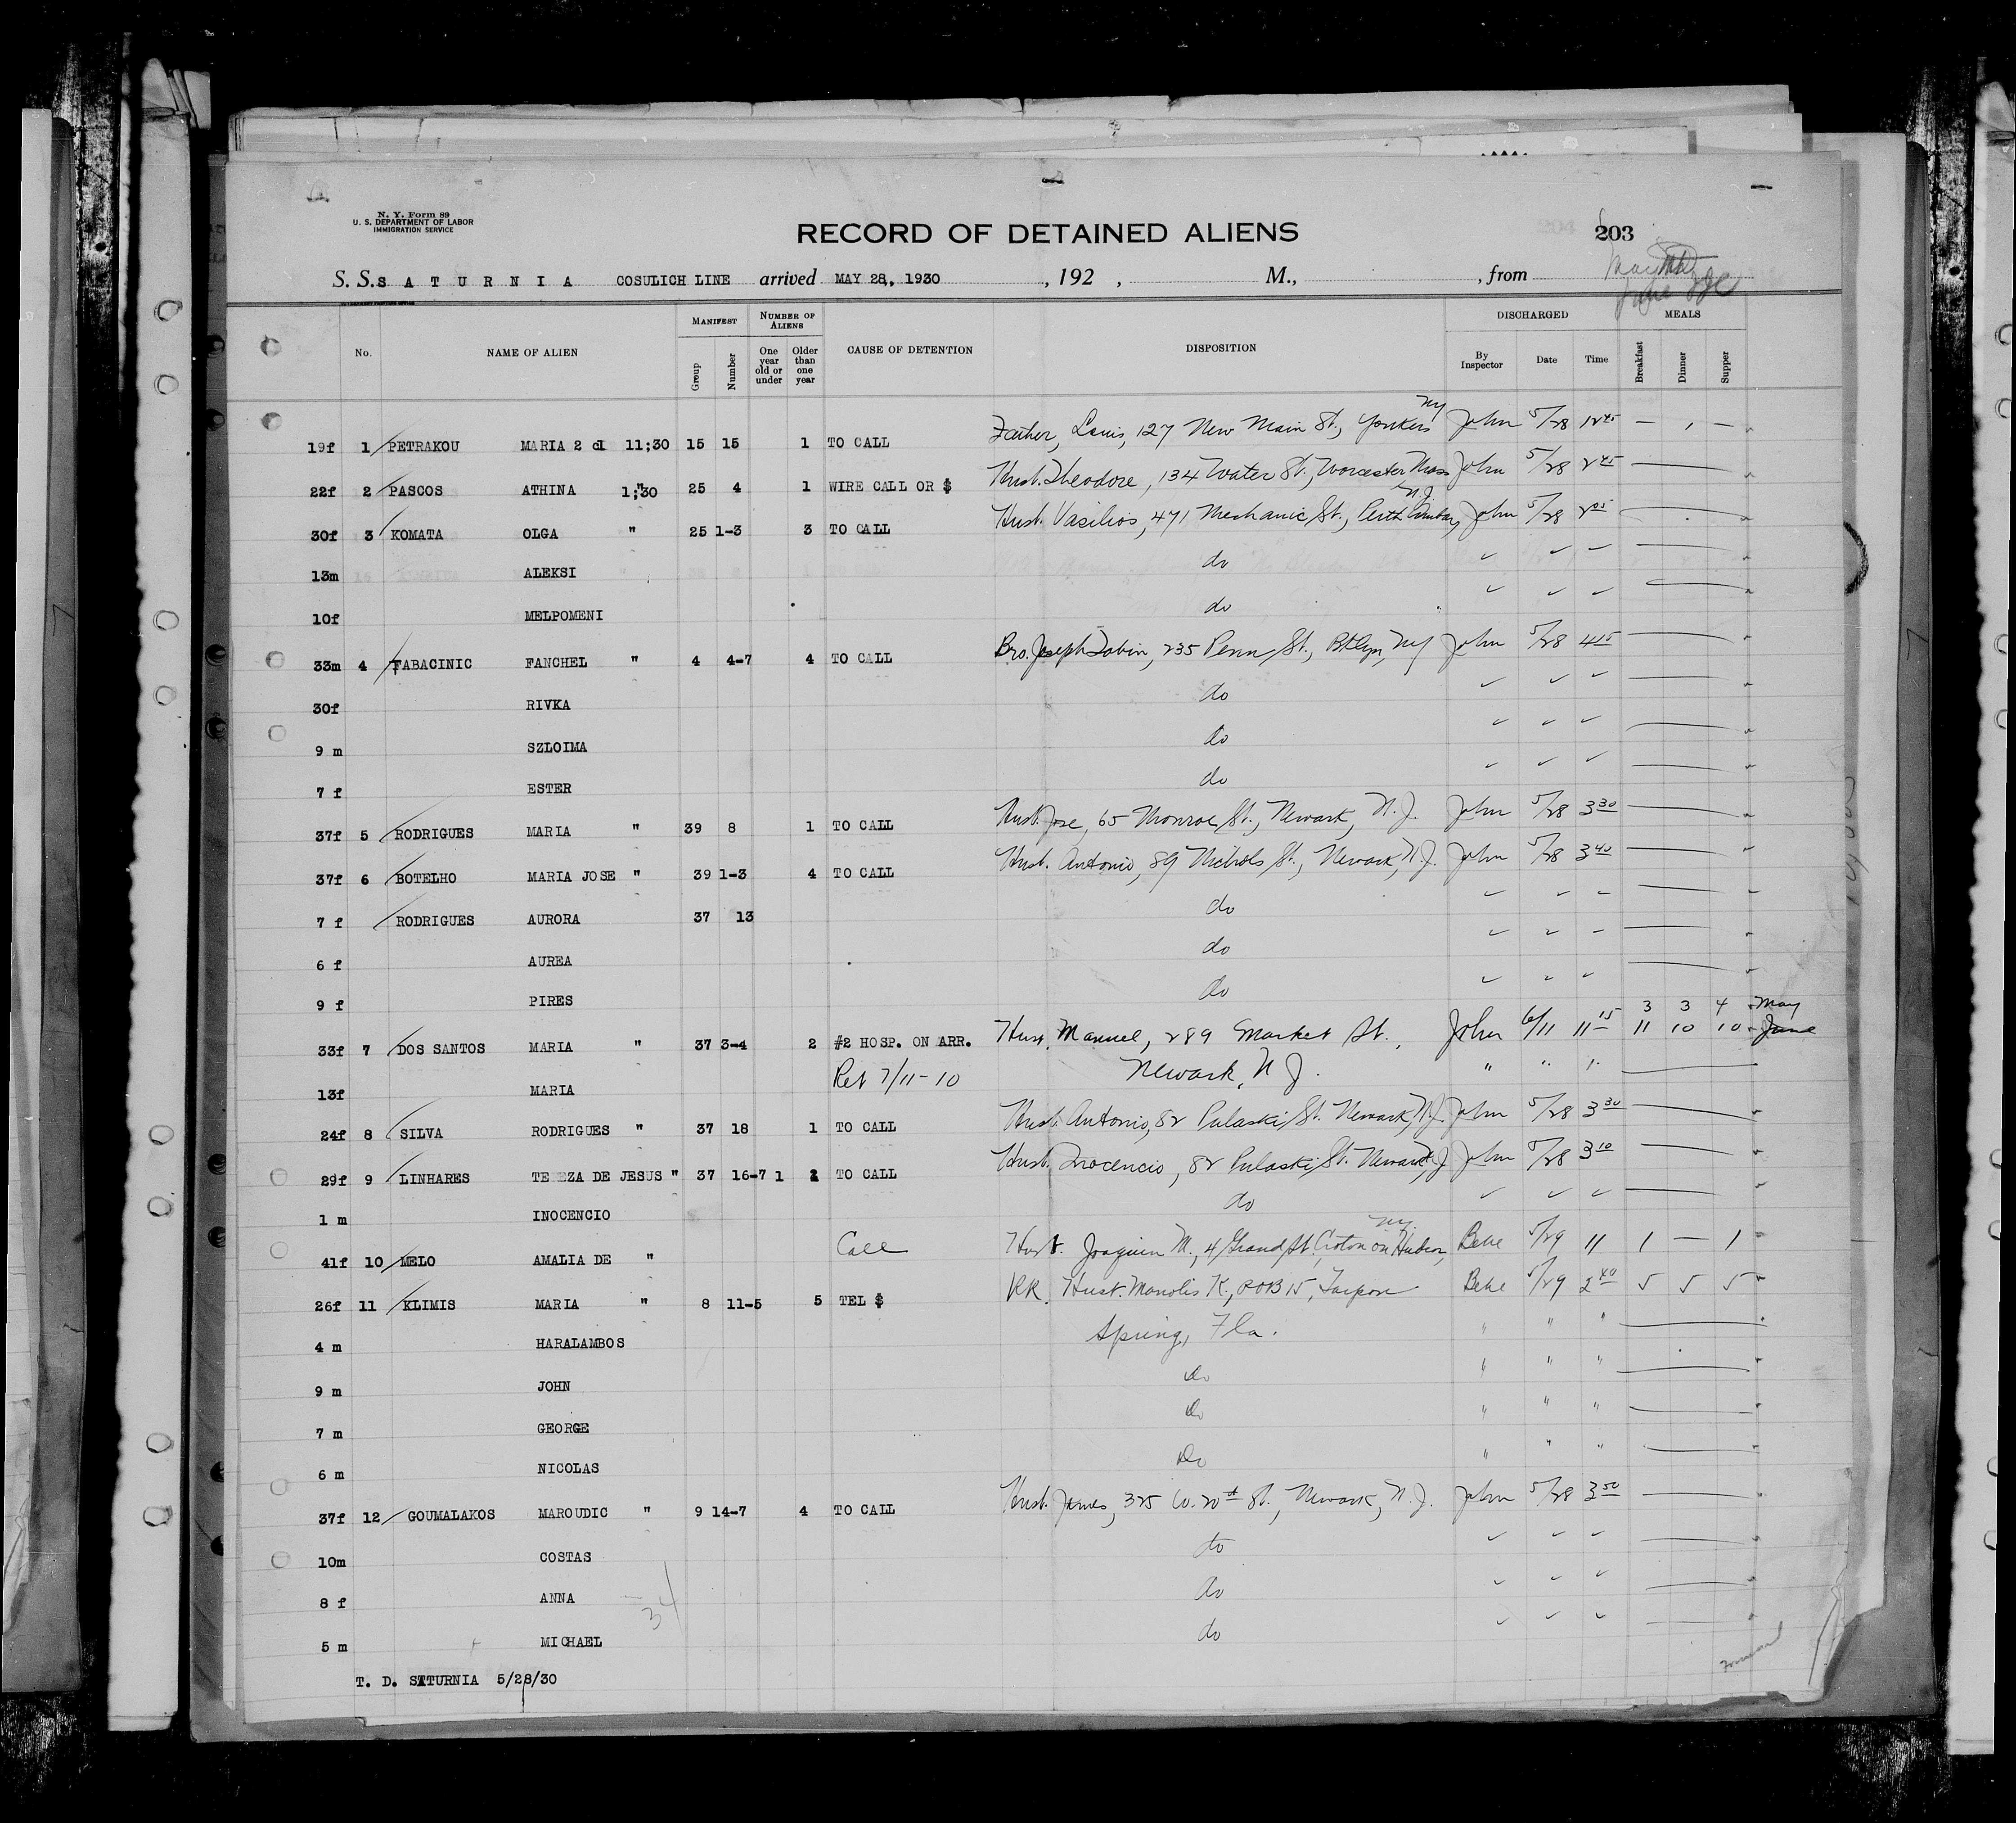 N. Y. Form 89
U. S. DEPARTMENT OF LABOR
IMMIGRATION SERVICE
RECORD OF DETAINED ALIENS
203
S. S. SATURNIA COSULICH LINE arrived MAY 28, 1930 , 192 , M., , from
No. NAME OF ALIEN MANIFEST NUMBER OF ALIENS CAUSE OF DETENTION DISPOSITION DISCHARGED MEALS
Group Number One year old or under Older than one year By Inspector Date Time Breakfast Dinner Supper
19f 1 PETRAKOU MARIA 2 cl 11;30 15 15 1 TO CALL Father, Louis, 127 New Main St., Yonkers NY John 5/28 12 45 — —
22f 2 PASCOS ATHINA " 1;30 25 4 1 WIRE CALL OR $ Hust. Theodore, 134 Water St., Worcester Mass John 5/28 2 45
30f 3 KOMATA OLGA " 25 1-3 3 TO CALL Hust. Vasilios, 471 Mechanic St., Perth Amboy, N.J. John 5/28 2 05
13m ALEKSI do
10f MELPOMENI do
33m 4 TABACINIC FANCHEL " 4 4-7 4 TO CALL Bro. Joseph Tobin, 235 Penn St., Bklyn, NY John 5/28 4 15
30f RIVKA do
9 m SZLOIMA do
7 f ESTER do
37f 5 RODRIGUES MARIA " 39 8 1 TO CALL Hust. Jose, 65 Monroe St., Newark, N.J. John 5/28 3 30
37f 6 BOTELHO MARIA JOSE " 39 1-3 4 TO CALL Hust. Antonio, 89 Nichols St., Newark, N.J. John 5/28 3 40
7 f RODRIGUES AURORA 37 13 do
6 f AUREA do
9 f PIRES do
3 3 4 May
33f 7 DOS SANTOS MARIA " 37 3-4 2 #2 HOSP. ON ARR. Hust. Manuel, 289 Market St., John 6/11 11 15 11 10 10 June
13f MARIA Ret 7/11-10 Newark, N J. " "
24f 8 SILVA RODRIGUES " 37 18 1 TO CALL Hust. Antonio, 82 Pulaski St. Newark, N.J. John 5/28 3 30
29f 9 LINHARES TE EZA DE JESUS " 37 16-7 1 1 TO CALL Hust. Inocencio, 82 Pulaski St. Newark N.J John 5/28 3 10
1 m INOCENCIO do
41f 10 MELO AMALIA DE " Call Hust. Joaquin M., 4 Grand St, Croton on Hudson, NY. Bene 5/29 11 1 — 1
26f 11 KLIMIS MARIA " 8 11-5 5 TEL $ RR. Hust. Manolis K., POB 15, Tarpon Bene 5/29 2 40 5 5 5
4 m HARALAMBOS Spring, Fla. " " "
9 m JOHN do " " "
7 m GEORGE do " " "
6 m NICOLAS do " " "
37f 12 GOUMALAKOS MAROUDIC " 9 14-7 4 TO CALL Hust. James, 325 W. 20th St., Newark, N.J. John 5/28 3 50
10m COSTAS do
8 f ANNA do
34
5 m MICHAEL do
T. D. SATURNIA 5/28/30